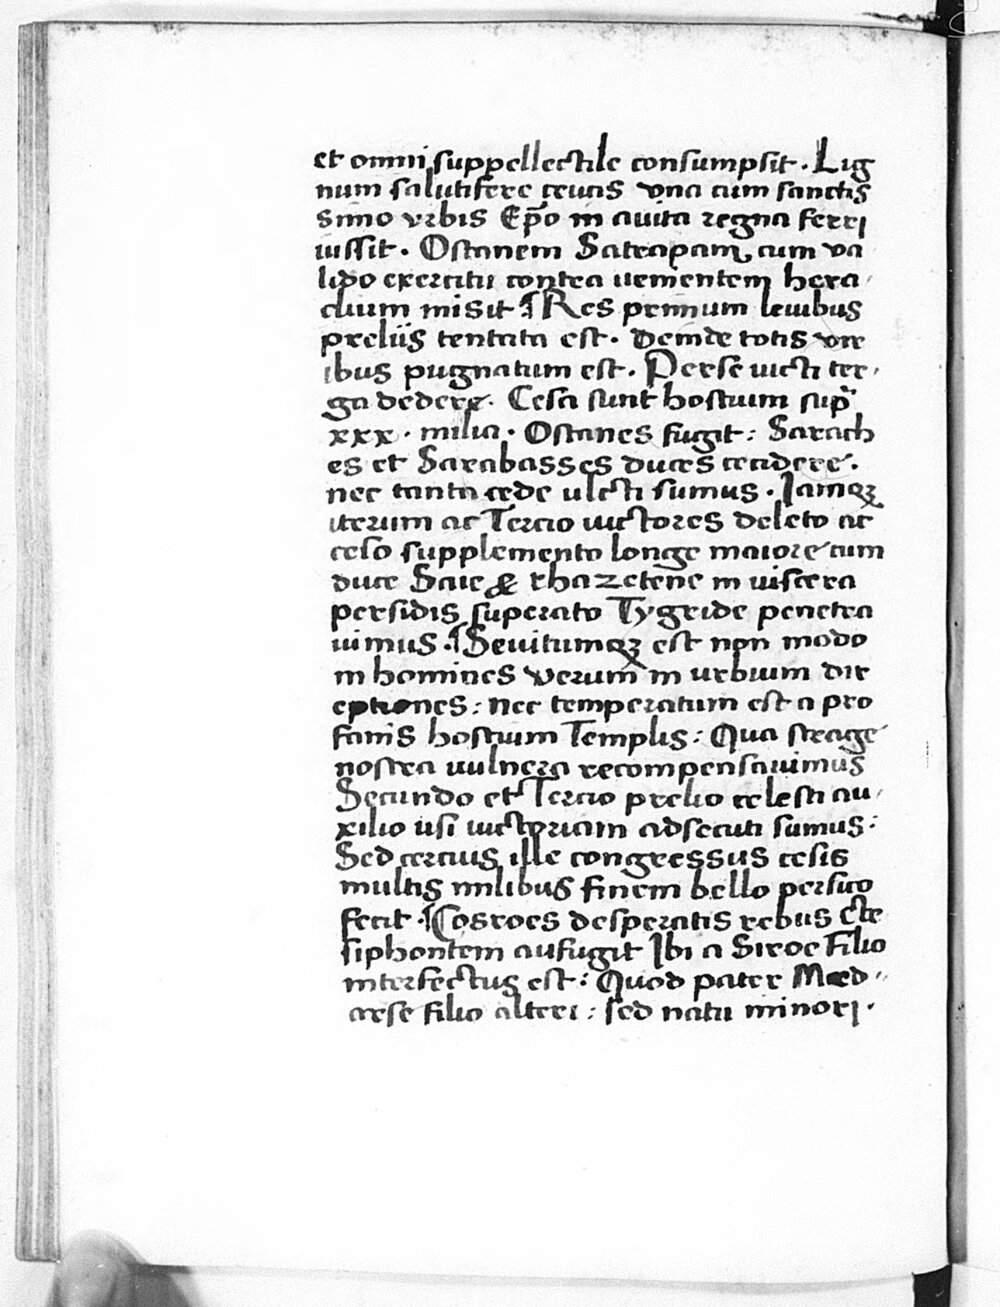 et omni suppellectile consumpsit. Lig
num salutifere crucis vna cum sanctis
simo vrbis Ep̃o in auita regna ferri
iussit. Ostanem Satrapam cum va
lido exercitu contra uementem hera
clium misit ¶ Res primum leuibus
preliis tentata est. Deinde totis vir
ibus pugnatum est. Perse uicti ter,
ga dedere. Cesa sunt hostium sup̃
xxx. milia. Ostanes fugit: Sarach
es et Sarabasses duces cecidere.
nec tanta cede ulcti sumus. Iamqꝫ
iterum ac Tercio uictores deleto ac
ceso supplemento longe maiore cum
duce Saie & rhazetene in uiscera
persidis superato Tygride penetra
uimus. ¶ Seuitumqꝫ est non modo
in homines verum in urbium dir
eptiones: nec temperatum est a pro
fanis hostium Templis: Qua strage
nostra uulnera recompensauimus
Secundo et Tercio prelio celesti au,
xilio usi uictoriam adsecuti sumus:
Sed tercius ille congressus cesis
multis milibus finem bello persico
fecit. ¶ Cosroes desperatis rebus Cte
siphontem aufugit Ibi a Siroe Filio
interfectus est: Quod pater Med,,
arse filio alteri: sed natu minori.